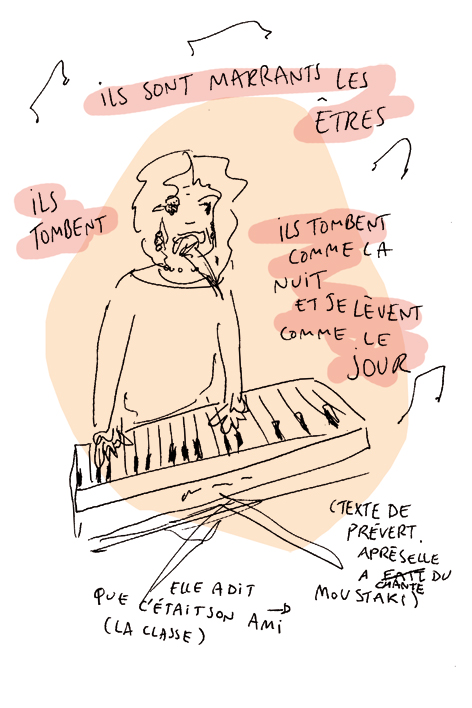 ILS SONT MARRANTS LES
ÊTRES
ILS
TOMBENT
ILS TOMBENT
COMME LA
NUIT
ET SE LÈVENT
COMME LE
JOUR
(TEXTE DE
PRÉVERT.
APRÈS ELLE
A FAIT DU
CHANTÉ
MOUSTAKI)
ELLE A DIT
QUE C'ÉTAIT SON AMI
(LA CLASSE)